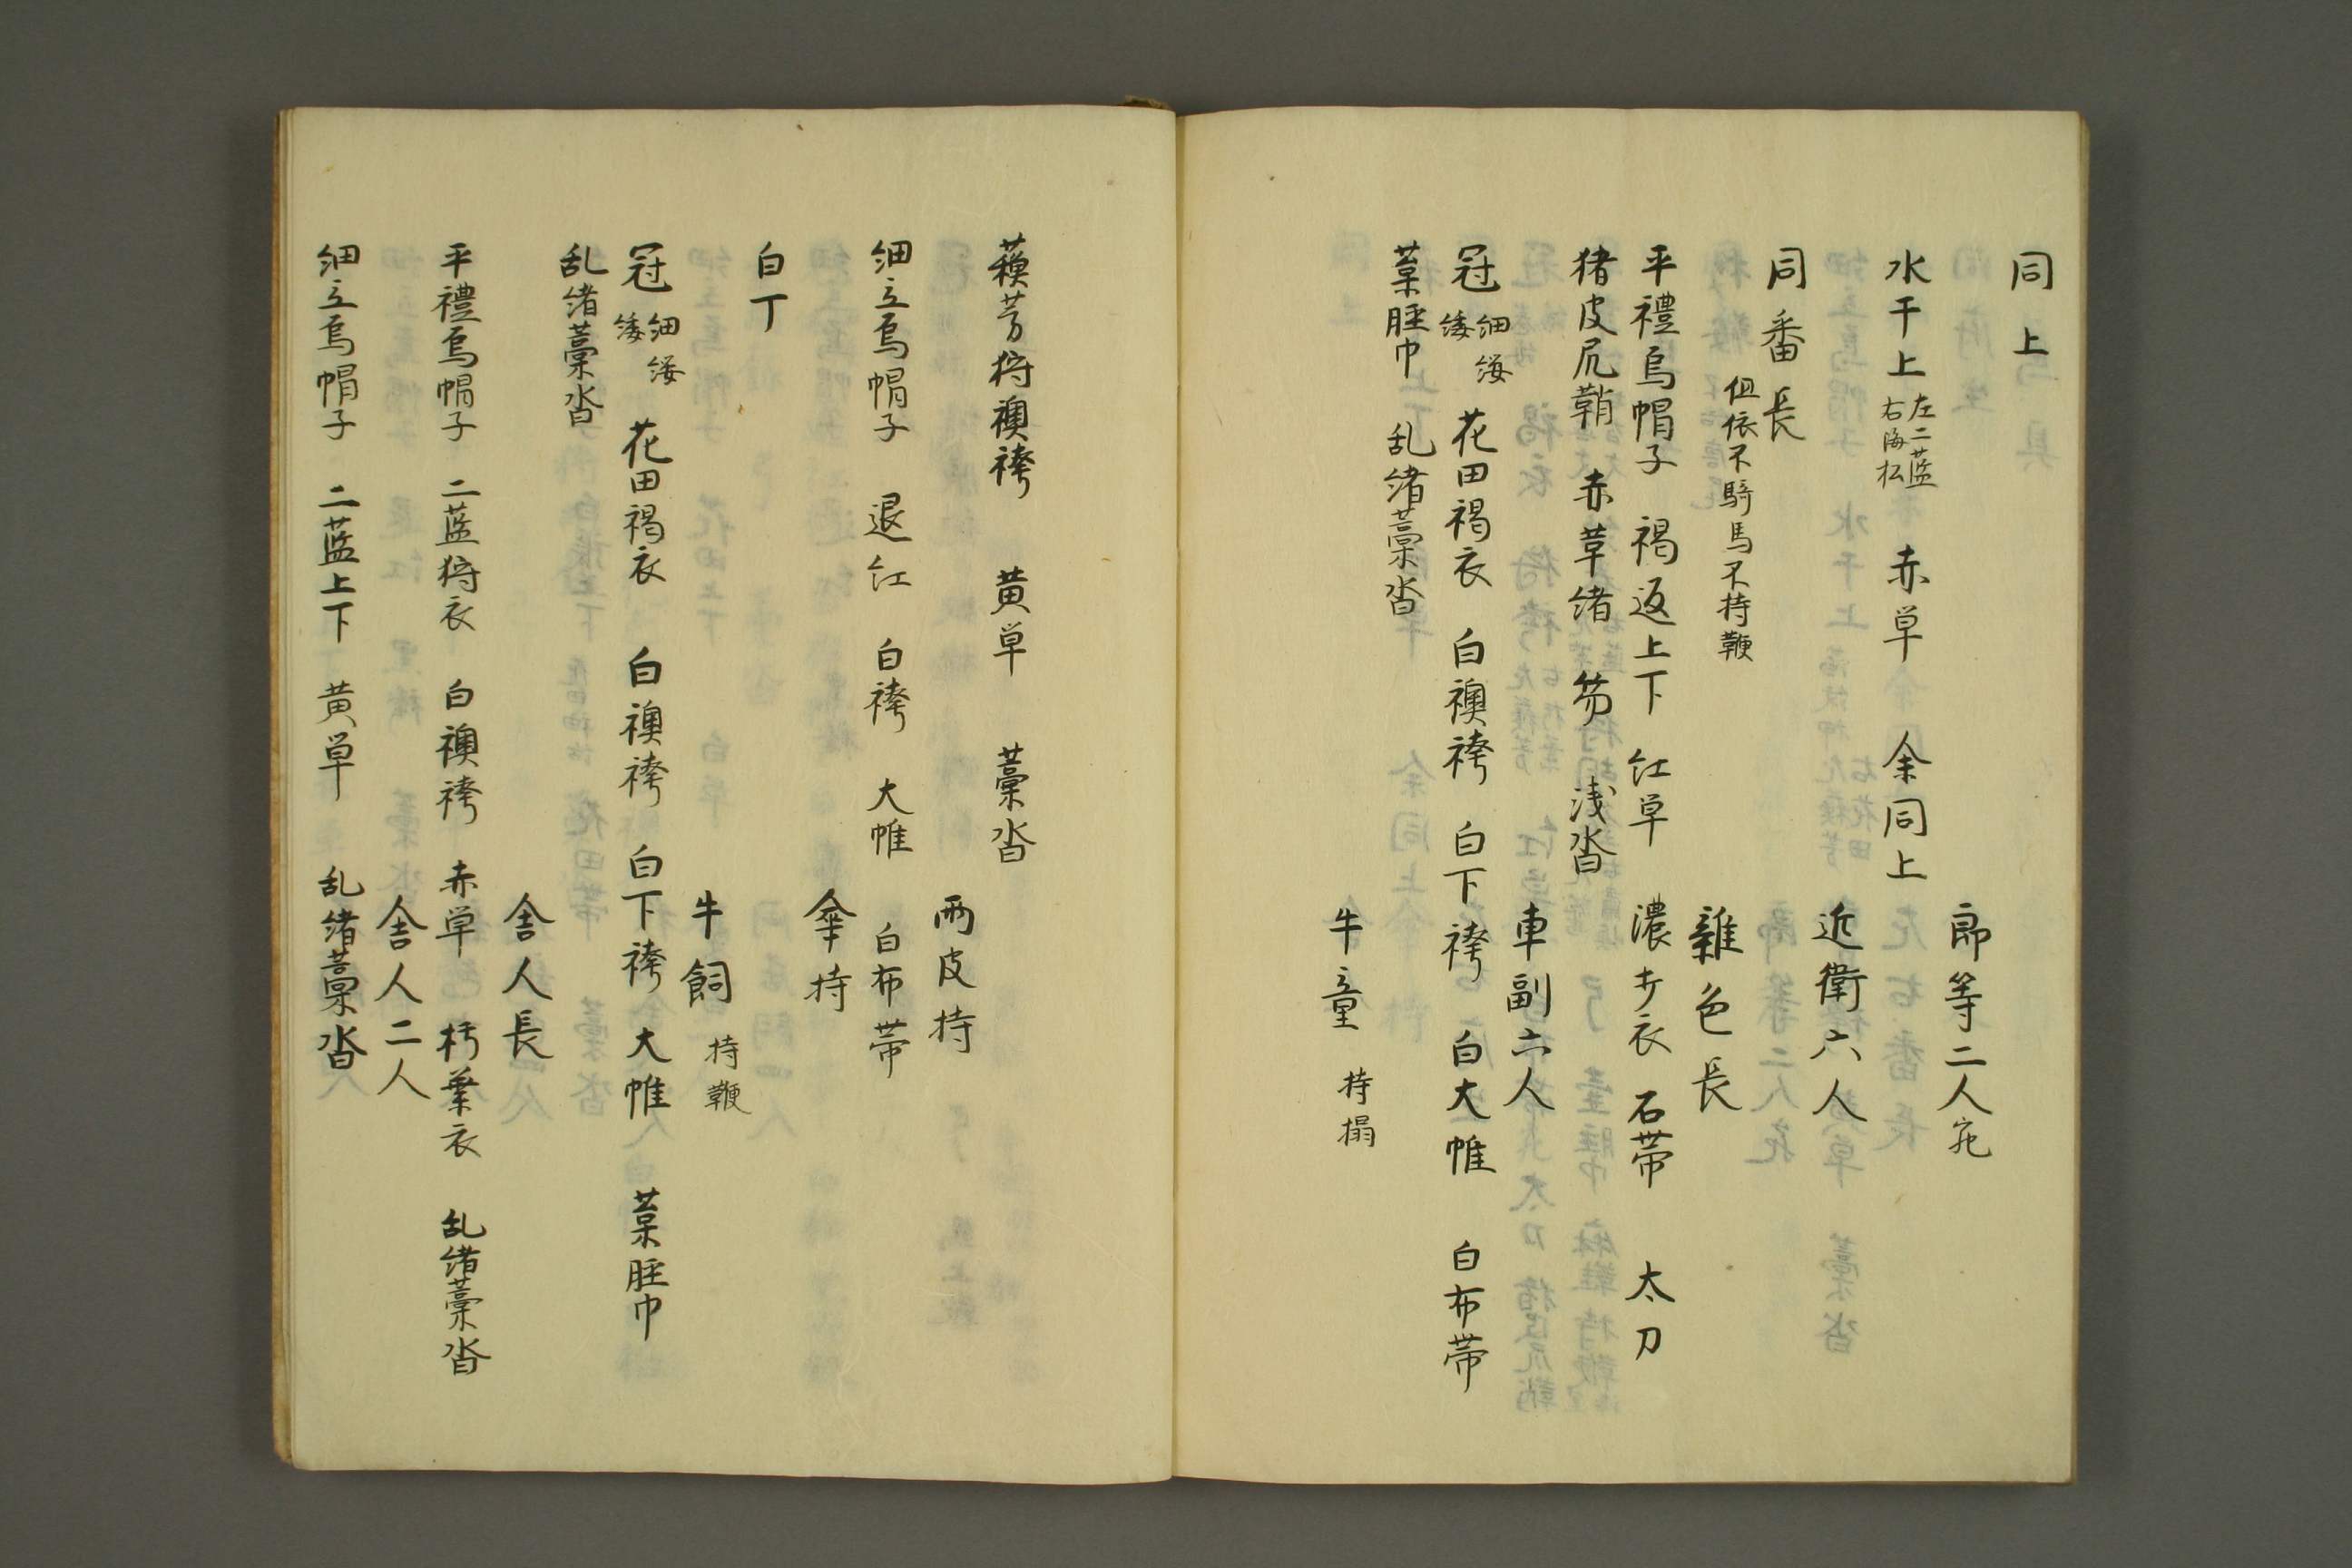 同上
郎等二人㐂
水干上 左二藍 右海松 赤単 余同上
近衛六人
同番長 但依不騎馬不持鞭
雑色長
平禮烏帽子 褐返上下 紅単 濃打衣 石帯 太刀
猪皮尻鞘 赤草緒 笏 浅沓
車副六人
冠 細纓 緌 花田褐衣 白襖袴 白下袴 白大帷 白布帯
葈脛巾 乱緒藁沓
牛童 持榻
蘇芳狩襖袴 黄単 藁沓
雨皮持
細立烏帽子 退紅 白袴 大帷 白布帯
傘持
白丁
牛飼 持鞭
冠 細纓 緌 花田褐衣 白襖袴 白下袴 大帷 葈脛巾
乱緒藁沓
舎人長
平禮烏帽子 二藍狩衣 白襖袴 赤単 朽葉衣 乱緒藁沓
舎人二人
細立烏帽子 二藍上下 黄単 乱緒藁沓